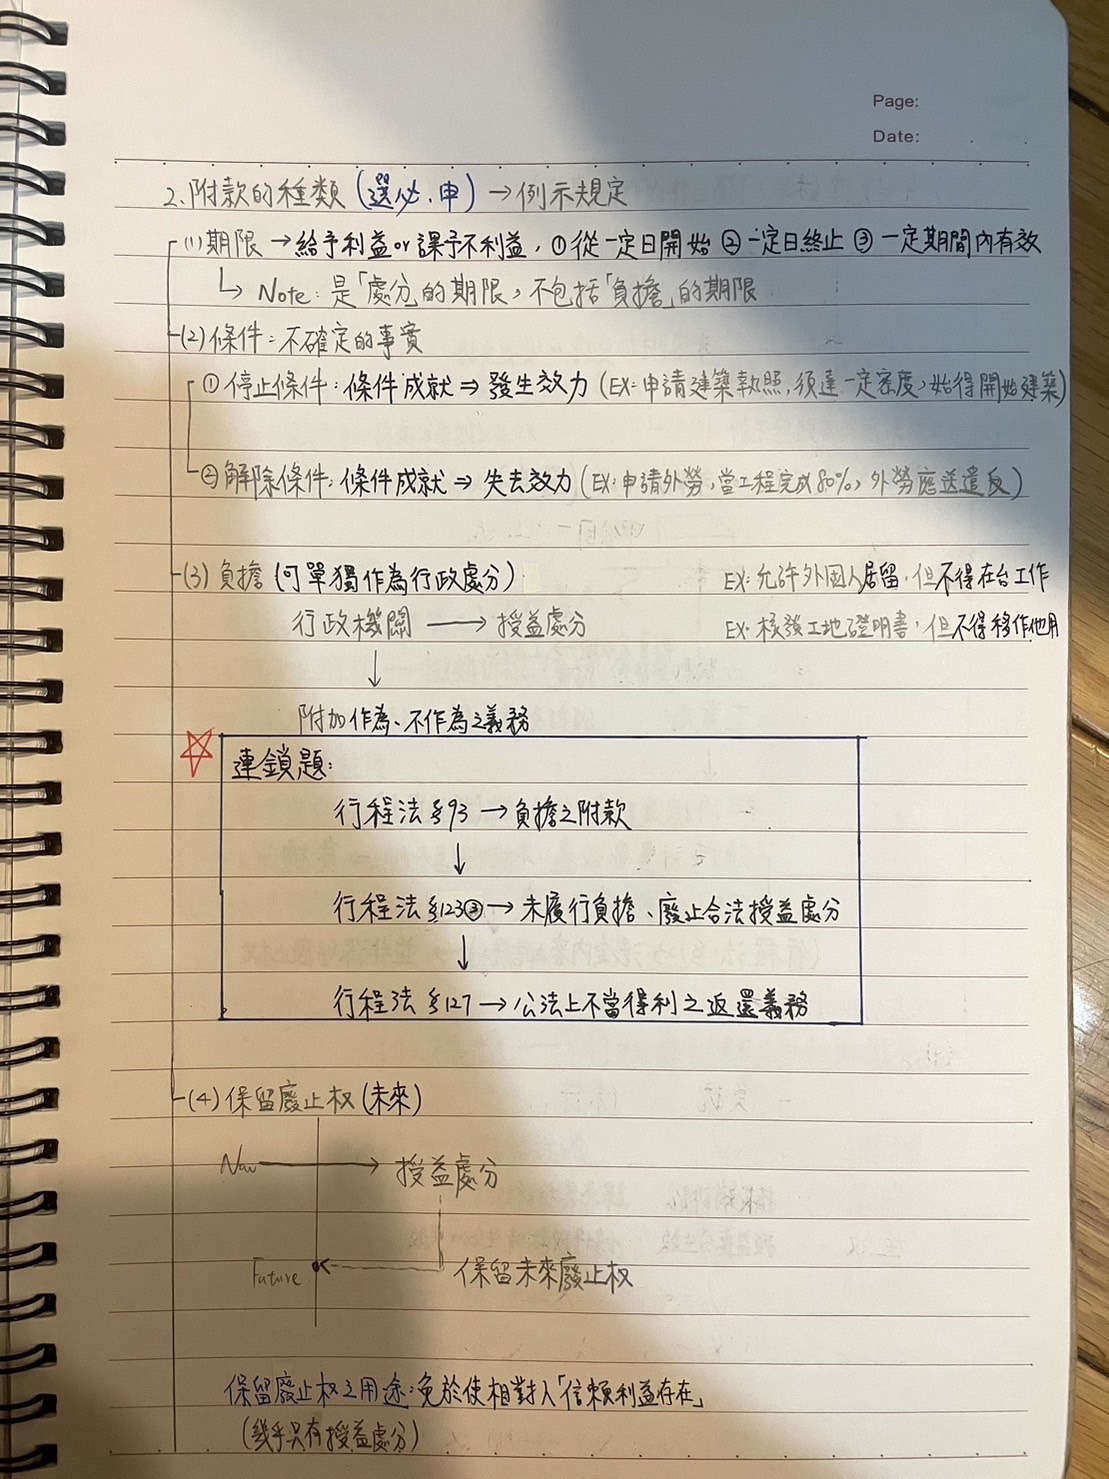 Page:
Date:
2.附款的種類(選必、申)→例示規定
(1)期限→給予利益or課予不利益,①從一定日開始②一定日終止③一定期間內有效
↳Note:是「處分」的期限,不包括「負擔」的期限
(2)條件:不確定的事實
①停止條件:條件成就⇒發生效力(EX:申請建築執照,須達一定密度,始得開始建築)
②解除條件:條件成就⇒失去效力(EX:申請外勞,當工程完成80%,外勞應送遣反)
(3)負擔(可單獨作為行政處分)
EX:允許外國人居留,但不得在台工作
行政機關→授益處分
EX:核發工地證明書,但不得移作他用
↓
附加作為、不作為之義務
☆連鎖題:
行程法§93→負擔之附款
↓
行程法§123③→未履行負擔、廢止合法授益處分
↓
行程法§127→公法上不當得利之返還義務
(4)保留廢止权(未來)
Now→授益處分
Future
保留未來廢止权
保留廢止权之用途:免於使相對人「信賴利益存在」
(幾乎只有授益處分)